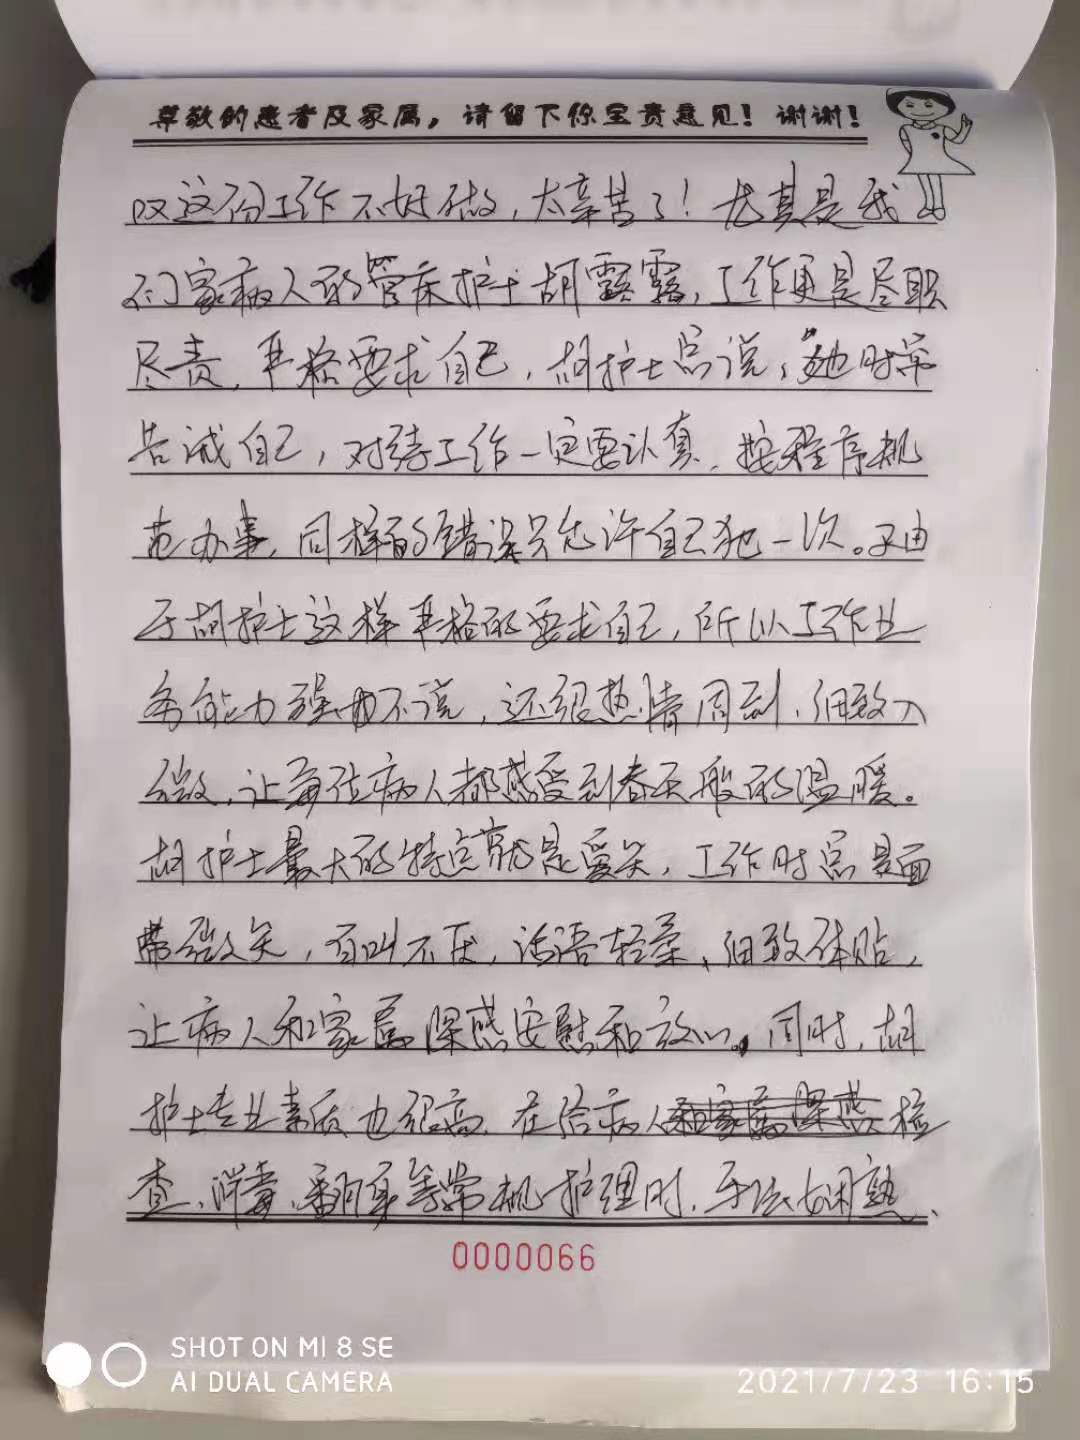 尊敬的患者及家属，请留下你宝贵意见！谢谢！
叹这份工作不好做，太辛苦了！尤其是我
们家病人的管床护士胡露露，工作更是尽职
尽责，严格要求自己，胡护士总说，她时常
告诫自己，对待工作一定要认真，按程序规
范办事，同样的错误只允许自己犯一次。正由
于胡护士这样严格的要求自己，所以工作业
务能力强也不说，还很热情周到，细致入
微，让每位病人都感受到春天般的温暖。
胡护士最大的特点就是爱笑，工作时总是面
带微笑，百叫不厌，话语轻柔、细致体贴，
让病人和家属深感安慰和放心。同时，胡
护士专业素质也很高，在给病人和家属深感检
查、消毒、翻身等常规护理时，手法娴熟、
0000066
SHOT ON MI 8 SE
AI DUAL CAMERA
2021/7/23 16:15